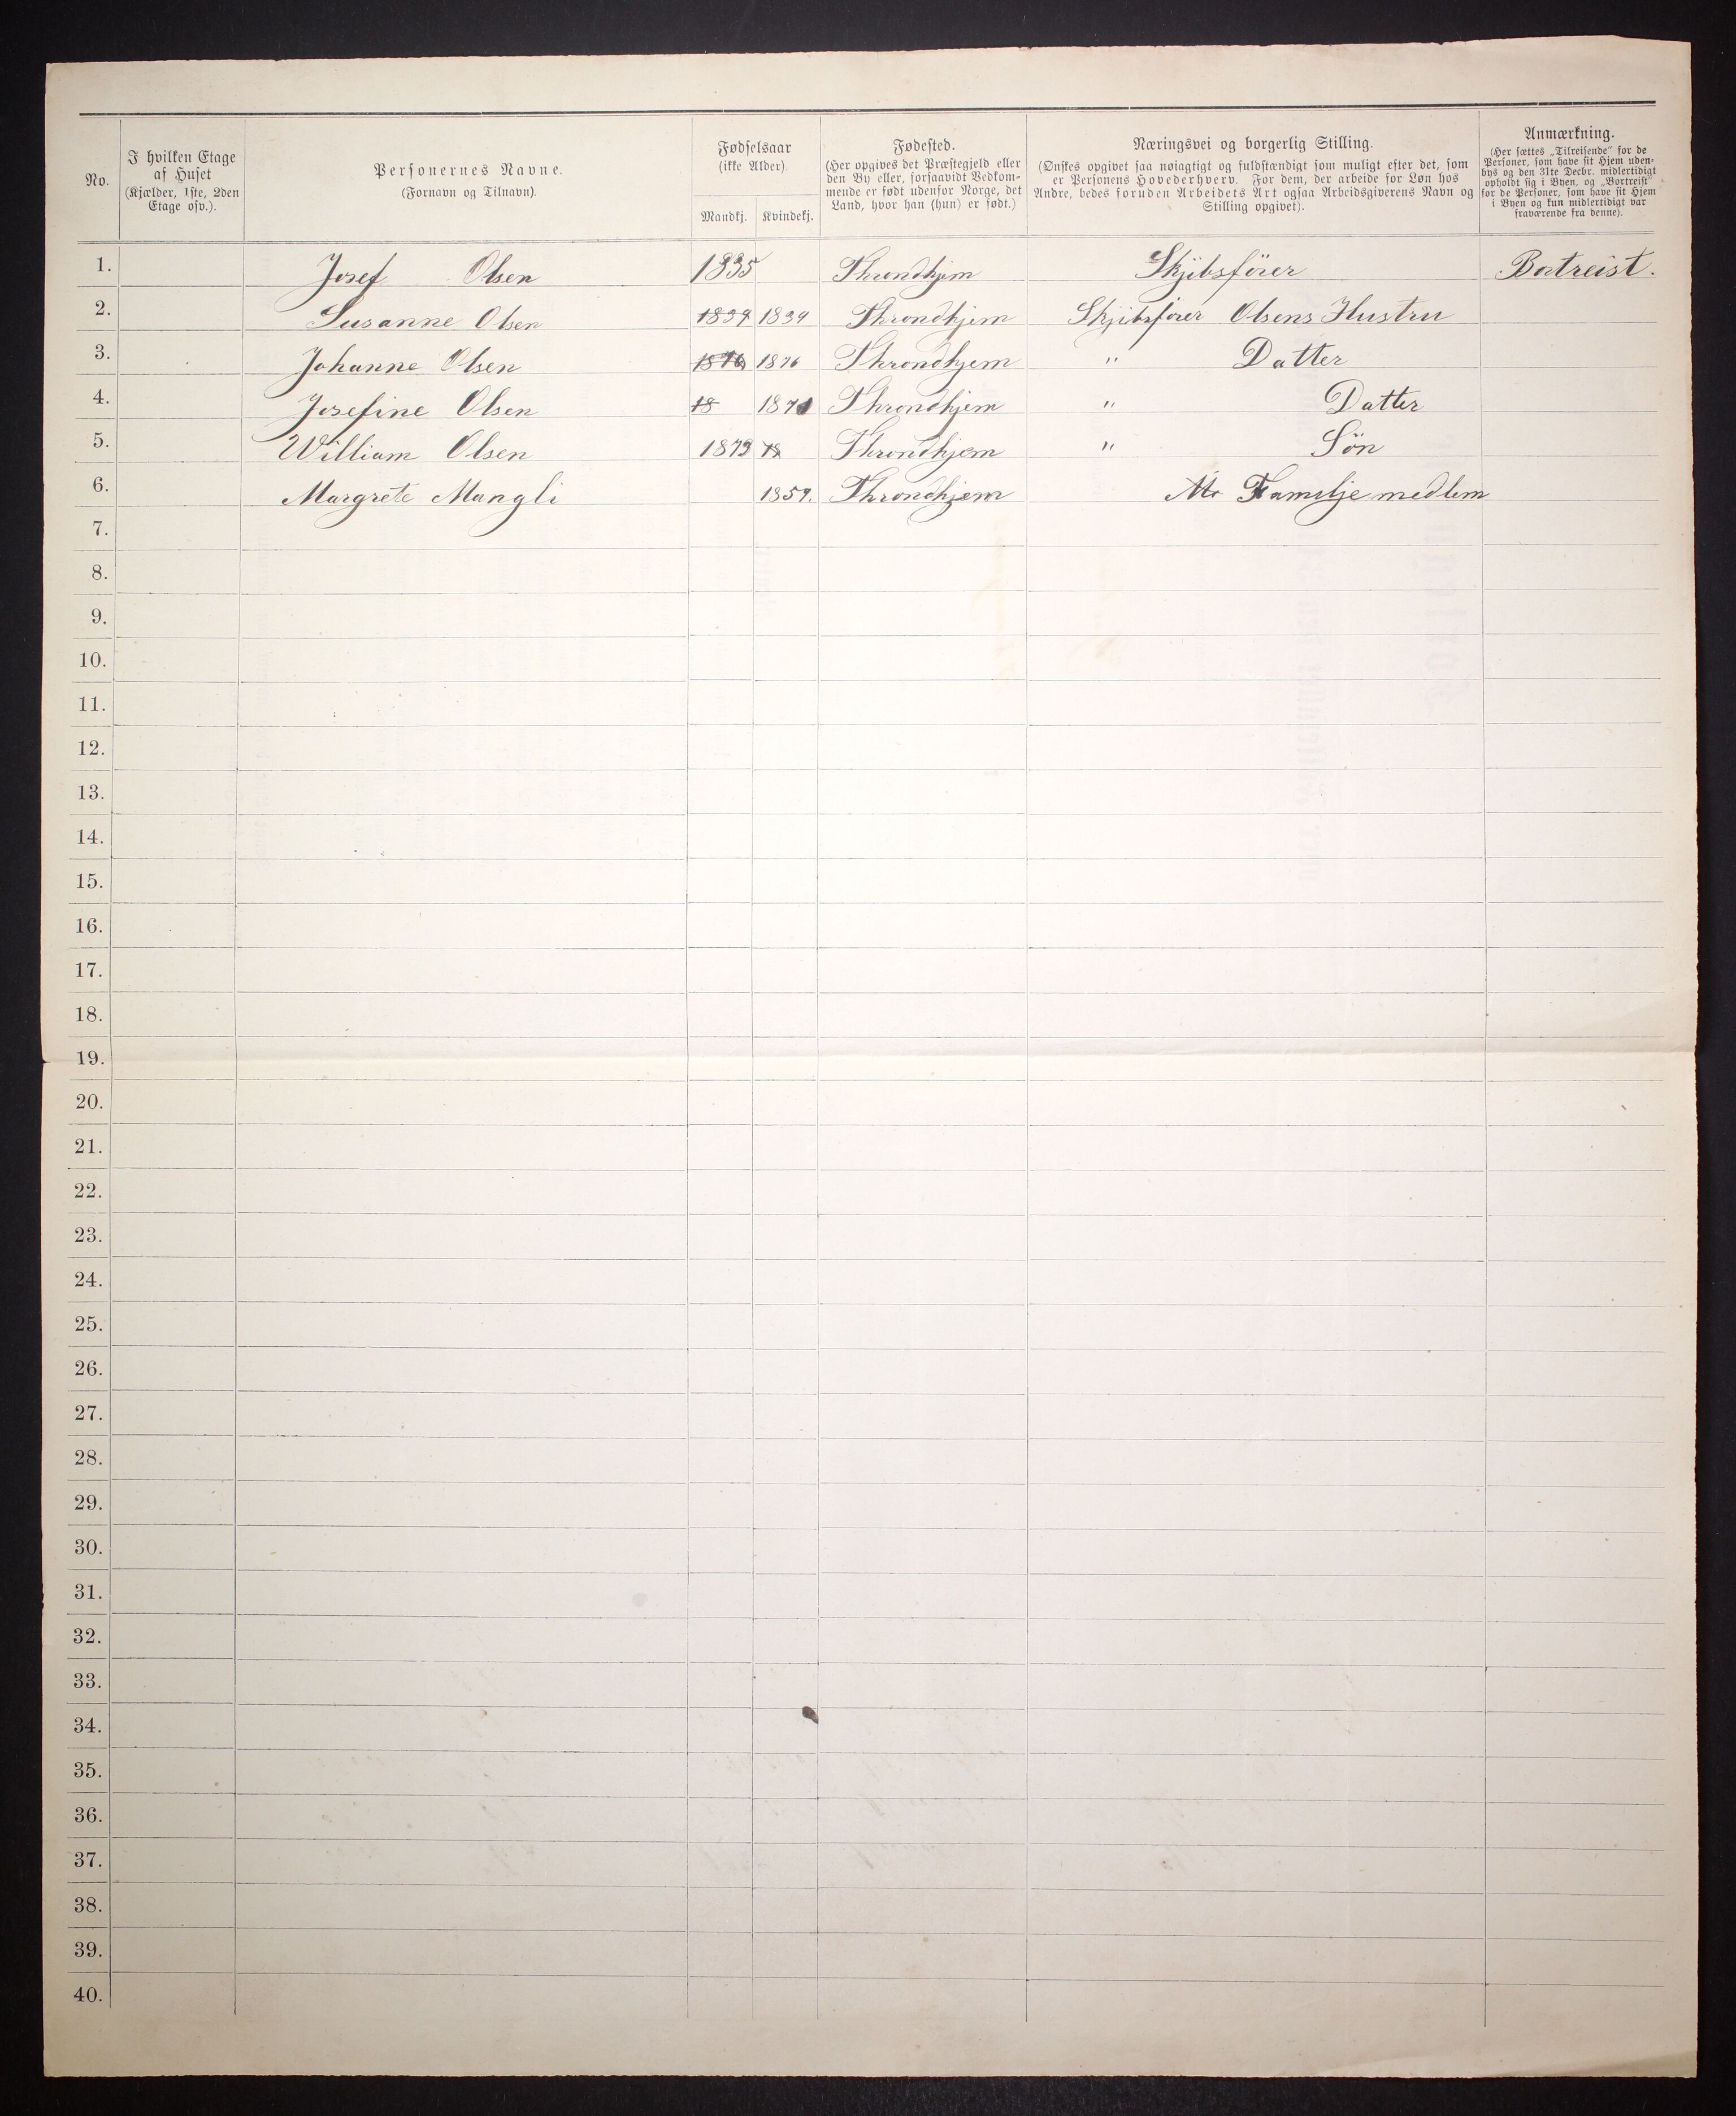 No.
I hvilken Etage
af Huset
(Kjælder, 1ste, 2den
Etage osv.).
Personernes Navne.
(Fornavn og Tilnavn).
Fødselsaar
(ikke Alder).
Mandkj. Kvindekj.
Fødested.
(Her opgives det Præstegjeld eller
den By eller, forsaavidt Vedkom-
mende er født udenfor Norge, det
Land, hvor han (hun) er født.)
Næringsvei og borgerlig Stilling.
(Ønskes opgivet saa nøiagtigt og fuldstændigt som muligt efter det, som
er Personens Hovederhverv. For dem, der arbeide for Løn hos
Andre, bedes foruden Arbeidets Art ogsaa Arbeidsgiverens Navn og
Stilling opgivet).
Anmærkning.
(Her sættes „Tilreisende" for de
Personer, som have sit Hjem uden-
bys og den 31te Decbr. midlertidigt
opholdt sig i Byen, og „Bortreist"
for de Personer, som have sit Hjem
i Byen og kun midlertidigt var
fraværende fra denne).
1. Josef Olsen 1835 Throndhjem Skjibsfører Bortreist.
2. Susanne Olsen 1839 Throndhjem Skjibsfører Olsens Hustru
3. Johanne Olsen 1876 1876 Throndhjem " Datter
4. Josefine Olsen 18 Throndhjem " Datter
5. William Olsen 1873 18 Throndhjem " Søn
6. Margrete Mangli 1859. Throndhjem Familjemedlem
7.
8.
9.
10.
11.
12.
13.
14.
15.
16.
17.
18.
19.
20.
21.
22.
23.
24.
25.
26.
27.
28.
29.
30.
31.
32.
33.
34.
35.
36.
37.
38.
39.
40.